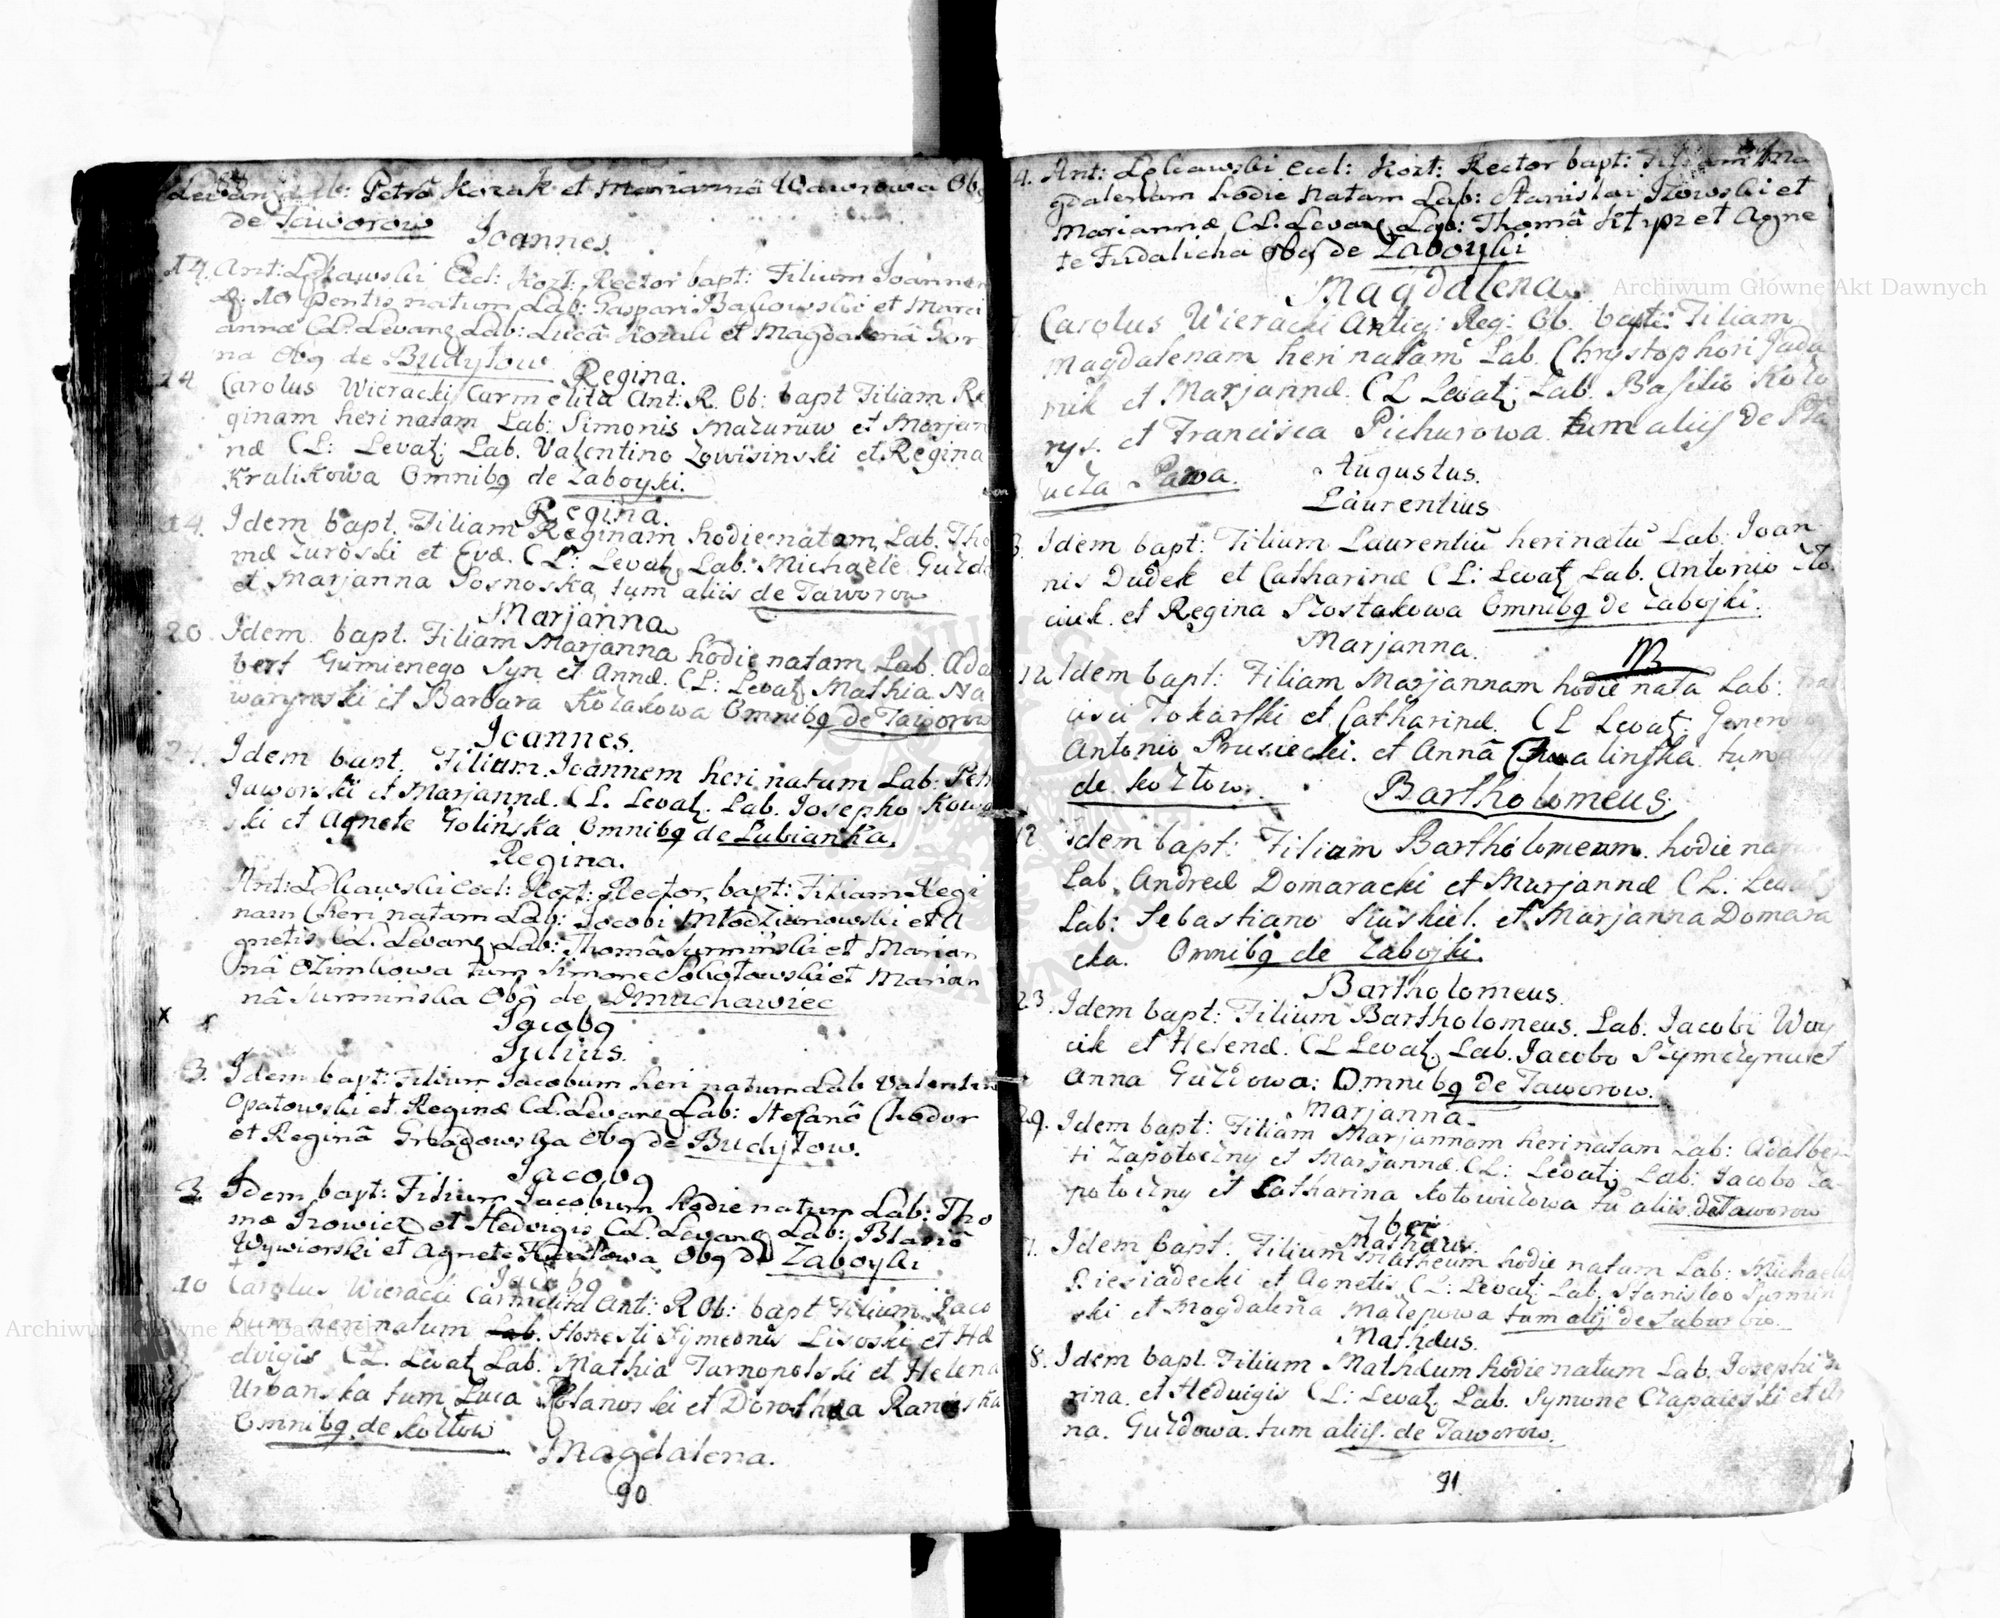 Levan Lab: Petro Kozak et Mariannâ Wawrowa Obq
de Taworow
Joannes.
14. Ant: Lękawski Eccl: Kozt: Rector bapt: Filium Joannem
natum Lab: Gaspari Bakowski et Mari
annæ CL: Levanq Lab: Lucâ Kozak et Magdalenâ Gor
na Obq de Budyłow
Regina.
14 Carolus Wieracki Carmelita Ant: R. Ob: bapt Filiam Re
ginam heri natam Lab: Simonis Mazuruw et Marjan
næ CL: Levatq Lab. Valentino Zowisinski et Regina
Kralikowa Omnibq de Zaboyki.
Regina.
14. Idem bapt. Filiam Reginam hodie natam, Lab. Tho
mæ Zuroski et Evæ. CL: Levatq Lab: Michaele Guzda
et Marjanna Sosnoska, tum aliis de Taworow
Marjanna
20. Idem bapt. Filiam Marjanna hodie natam Lab. Adal
bert Gumienego Syn et Annæ. CL: Levatq Mathia Na
warynski et Barbara Kozakowa Omnibq de Taworow
Joannes.
Idem bapt. Filium Joannem heri natum Lab: Petri
Jaworski et Marjannæ. CL. Levatq. Lab. Josepho Kowa
ski et Agnete Golinska Omnibq de Lubianka.
Regina.
Ant: Lękawski Eccl: Kozt: Rector, bapt: Filiam Regi
nam heri natam Lab: Jacobi Młodzianowski et A
gnetis CL. Levanq Lab: Thomâ Surminski et Marian
nâ Ozimkowa tum Simone Sobotowski et Marian
nâ Surmińska Obq de Dmuchawiec
x x
Jacobq
Julius.
3. Idem bapt: Filium Jacobum heri natum Lab Valentin
Opatowski et Reginæ CL. Levanq Lab: Stefanô Chodor
et Reginâ Obq de Budyłow.
Jacobq
3. Idem bapt: Filium Jacobum hodie natum Lab: Tho
mæ Irowicz et Hedvigis CL. Levanq Lab: Blasiô
Wywiorski et Agnete Obq de Zaboyki
Jacobq
10 Carolus Wieracki Carmelita Ant: R Ob: bapt Filium Jaco
bum heri natum Lab. Honesti Symeonis Lisoski et He
dvigis CL. Levatq Lab. Mathia Tarnopolski et Helena
Urbanska tum Luca Polanoski et Dorothea Raniska
Omnibq de Kozłow
Magdalena.
90
4. Ant: Lękawski Eccl: Kozt: Rector bapt: Filiam Ma
gdalenam hodie natam Lab: Stanislai Irowski et
Mariannæ CL: Levanq Lab: Thomâ et Agne
te Fudalicha Obq de Zaboyki
Magdalena.
Carolus Wieracki Antiq: Reg: Ob. bapt: Filiam
Magdalenam heri natam Lab. Chrystophori Jada
mik et Marjannæ. CL Levatq Lab. Basilio Kolo
rys. et Francisca Pichurowa tum aliis de Pła
ucza Parva.
Augustus.
Laurentius
Idem bapt: Filium Laurentiũ heri natũ Lab: Joan
nis Dudek et Catharinæ CL: Levatq Lab. Antonio
ciuk et Regina Szostakowa Omnibq de Zabojki.
Marjanna. NB
12. Idem bapt: Filiam Marjannam hodie nata Lab: Fran
cisci Tokarski et Catharinæ CL Levatq: Generoso
Antonio Prusiecki. et Annâ Chwalinska tum aliis
de Kozłow.
Bartholomeus
12. Idem bapt: Filium Bartholomeum. hodie natum
Lab. Andreæ Domaracki et Marjannæ CL: Levatq
Lab: Sebastiano Kuskiel. et Marjanna Domara
cka. Omnibq de Zabojki.
Bartholomeus.
23. Idem bapt: Filium Bartholomeus. Lab. Jacobi Woy
cik et Helenæ. CL Levatq. Lab. Jacobo Szymczyna et
Anna Guzdowa: Omnibq de Taworow.
Marjanna.
29. Idem bapt: Filiam Marjannam heri natam Lab: Adalber
ti Zapotoczny et Marjannæ. CL: Levatq Lab: Jacobo Za
potoczny et Catharina Kotowiczowa tũ aliis. de Taworow
7bris
Mathæus.
Idem bapt: Filium Matheum hodie natam Lab: Michaelis
Biesiadecki et Agnetis CL: Levatq Lab. Stanislao Surmin
ski et Magdalena Małepowa tum alij de Suburbio.
Mathæus.
8. Idem bapt. Filium Mathæum hodie natum Lab. Josephi
rina. et Hedvigis CL: Levatq Lab. Symone Czapaieski et An
na. Guzdowa. tum aliis. de Taworow.
91